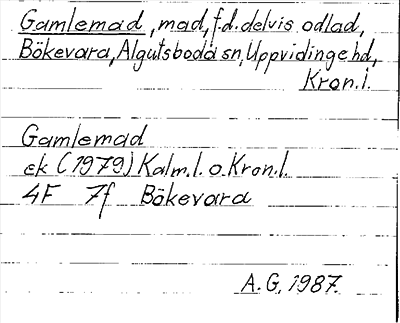 Gamlemad, mad, f.d. delvis odlad,
Bökevara, Algutsboda sn, Uppvidinge hd,
Kron.l.
Gamlemad
ek (1979) Kalm.l. o. Kron.l.
4F 7f Bökevara
A.G. 1987